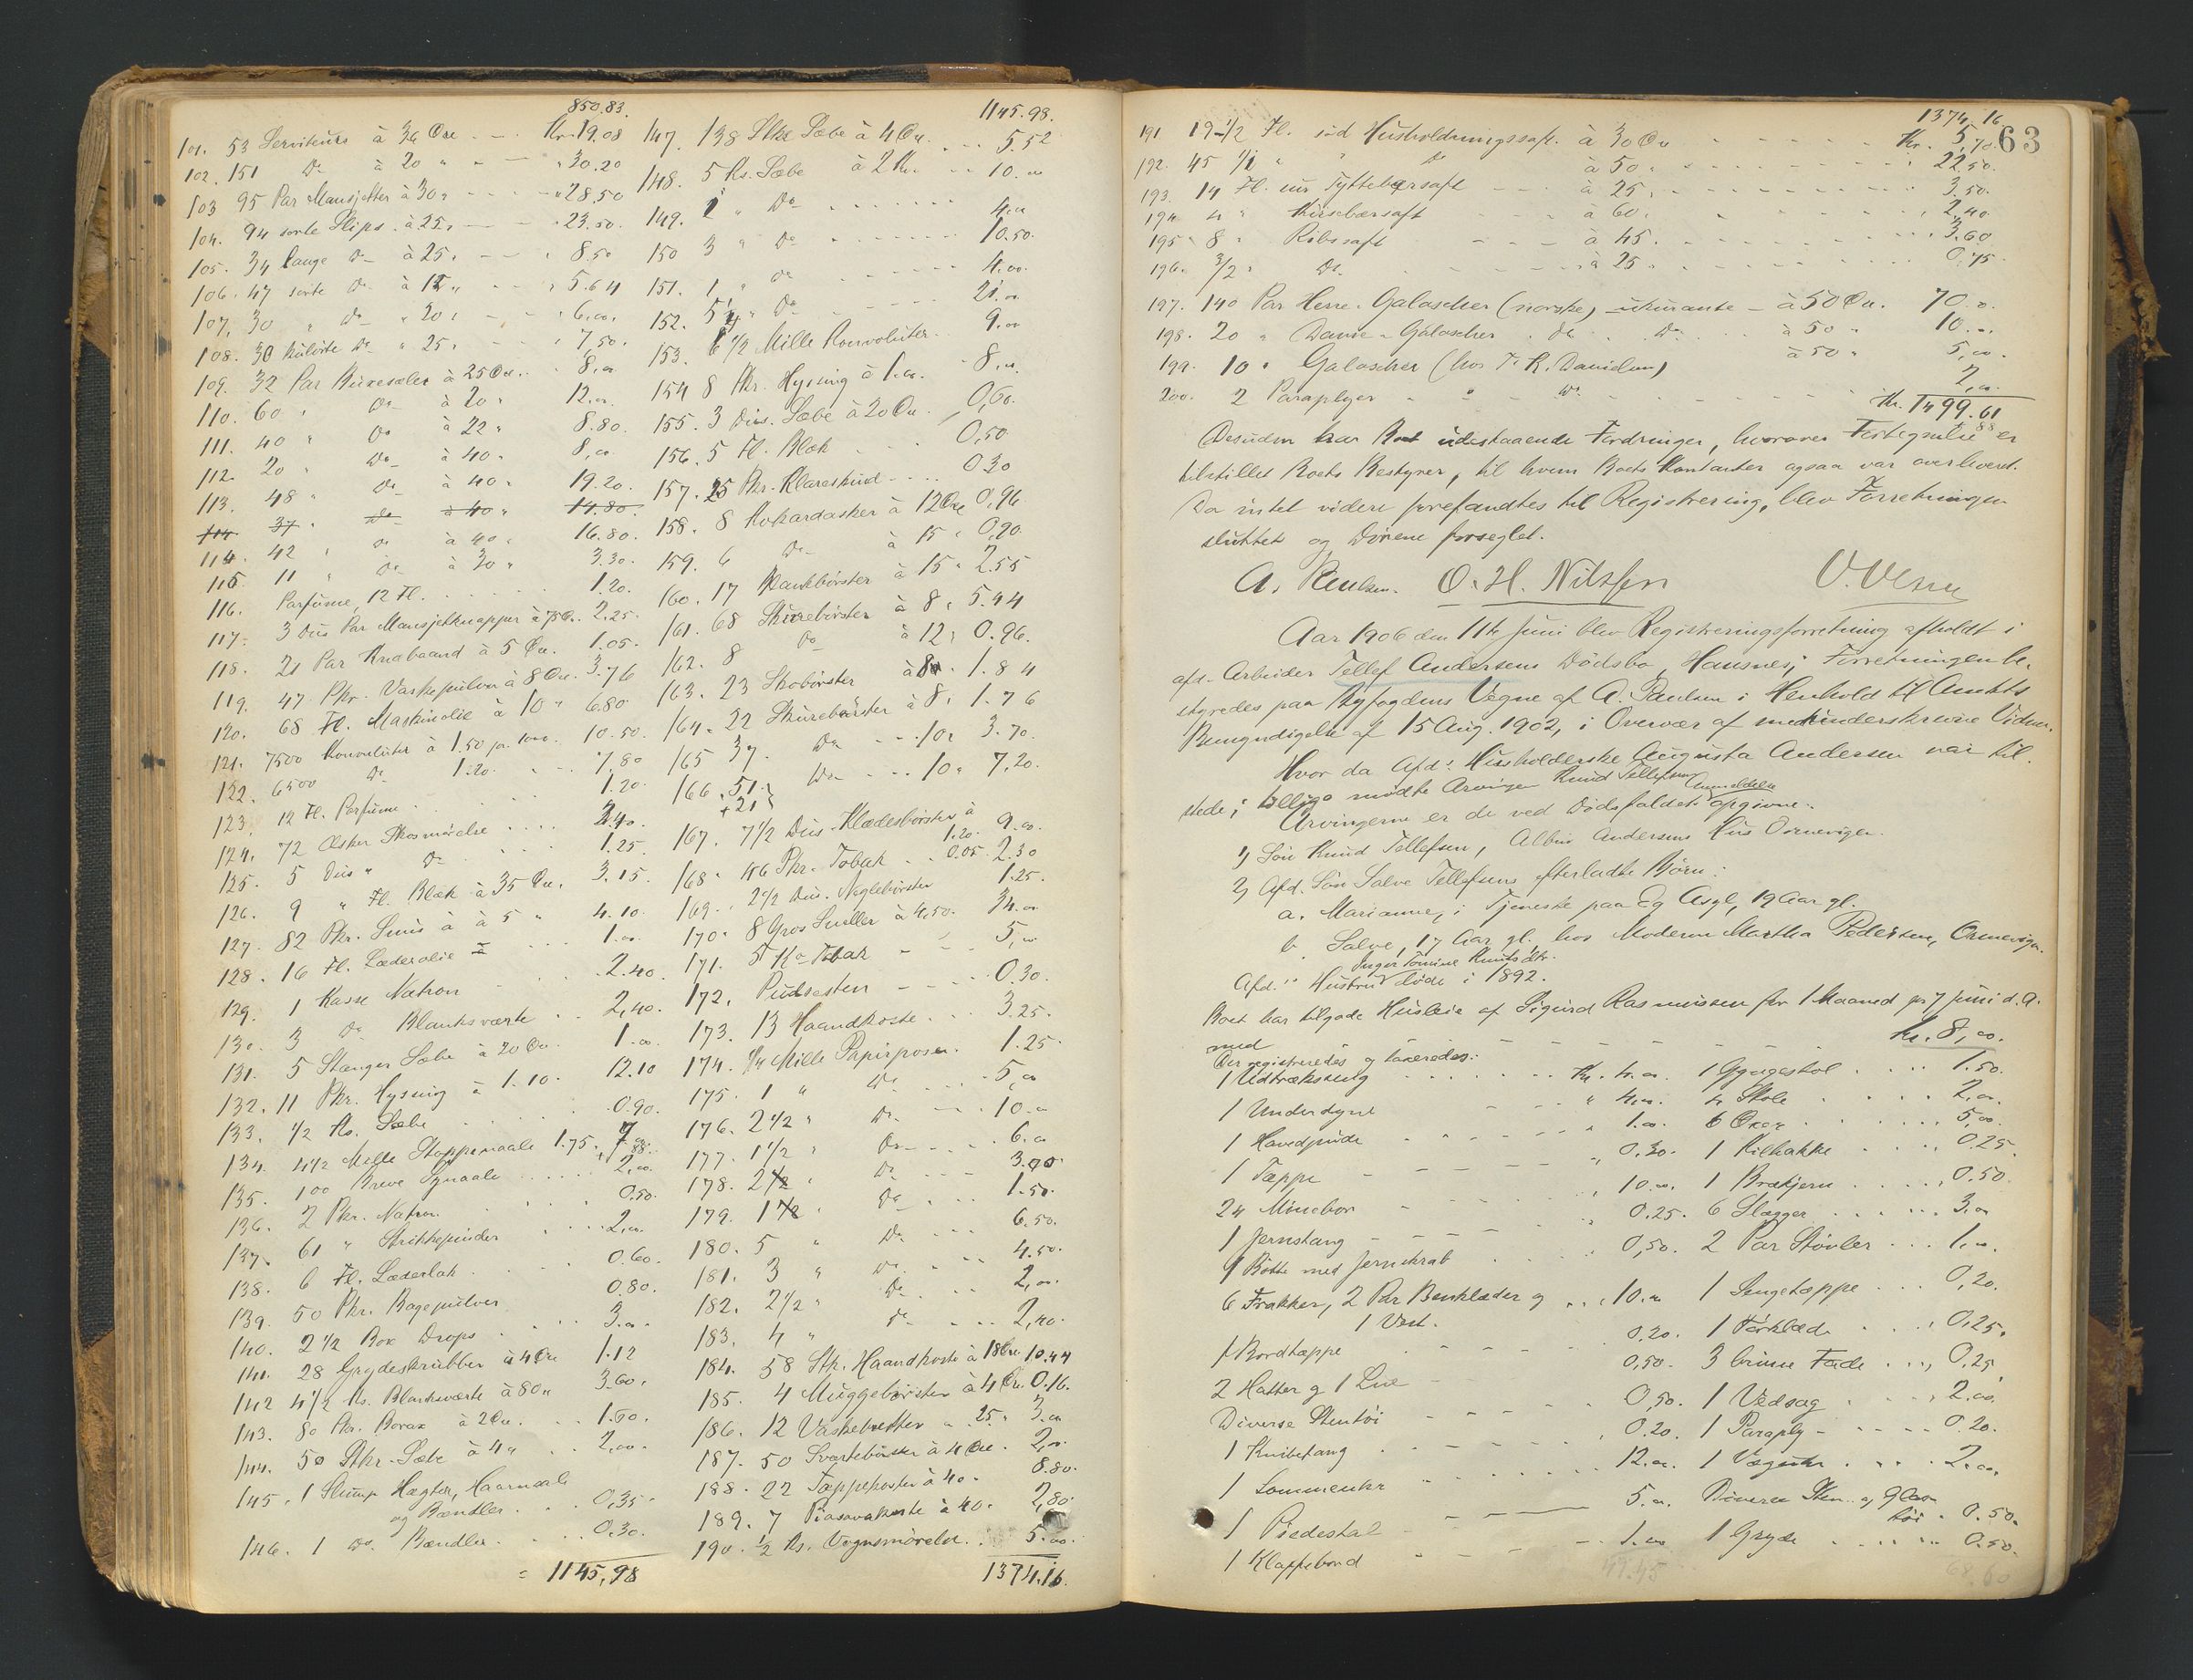 850.83.
101. 53 Serviteurs à 36 Øre - - Kr. 19.08
102. 151 Do à 20 " - - " 30.20
103 95 Par Mansjetter à 30 " - - - " 28.50
104. 94 sorte Slips. à 25 " - - " 23.50.
105. 34 lange Do à 25 " - - " 8.50
106. 47 sorte Do à 12 " - - " 5.64
107. 30 " Do " 20 " - - " 6.00,
108. 30 kulørte Do " 25 " - " 7,50.
109. 32 Par Buxeseler à 25 Øre. . 8,00
110. 60 " Do à 20 " 12.00
111. 40 " Do à 22 " 8.80.
112. 20 " Do à 40 " 8,00
113. 48 " Do à 40 " 19.20.
114 37 " Do à 40 " 14.80.
114. 42 " Do à 40 " 16.80.
115. 11 " Do à 30 " 3.30.
116. Parfume, 12 Fl. . . . . 1.20.
117. 3 Dus Par Mansjetknapper à 75 Ø. 2.25.
118. 21 Par Knæbaand à 5 Øre. 1.05.
119. 47 Pkr. Vaskepulver à 8 Øre. 3.76
120. 68 Fl. Maskinolie à 10 " 6.80
121. 7500 Konvolutter à 1.50 pr. 1000. 10.50.
122. 6500 Do 1.20. - - 7,80
123. 12 Fl. Parfume . . . . 1.20.
124. 72 Æsker Skosmørelse . . . . 2.40.
125. 5 Dus " Do . . . . 1.25.
126. 9 " Fl. Blæk à 35 Øre. 3.15.
127. 82 Pkr. Smus à 5 " 4.10.
128. 16 Fl. Læderolie . . . 1.00
129. 1 Kasse Natron . . . 2.40.
130. 3 Do Blanksværte . . 2,40.
131. 5 Stænger Sæbe à 20 Øre. . 1.00.
132. 11 Pkr. Hysing à 1.10. 12.10
133. 1/2 Ks. Sæbe . . . . 0.90.
134. 4 1/2 Mille Stoppenaale 1.75. 7.88.
135. 100 Breve Synaale . . . . . 2,00.
136. 2 Pkr. Natron . . . 0.50.
137. 61 " Strikkepinder . . . 2.00.
138. 6 Fl. Læderlak . . . 0.60.
139. 50 Pkr. Bagepulver . . . 0.80.
140. 2 1/2 Box Drops . . . 3.00.
141. 28 Grydeskrubber à 4 Øre 1.12
142 4 1/2 Ks. Blanksværte à 80 " 3.60.
143. 80 Pkr. Borax à 2 Øre. . . 1.60.
144. 50 Stkr. Sæbe à 4 " . . 2,00.
145. 1 Slump Hægter, Haarnaale
og Bændler . . . 0,35
146. 1 Do. Bændler. . . . 0.30.
= 1145,98
1145.98.
147. 138 Stkr Sæbe à 4 Øre. . . . 5.52
148. 5 Ks. Sæbe à 2 Kr. . . 10.00
149. 1 " Do . . . . . . 4.00
150 3 " Do . . . . . . 10.50.
151. 1 " Do - - - - 4.00.
152. 5 1/4 " Do - - - - 21.00
153. 6 1/2 Mille Konvolutter. . 9.00
154 8 Pkr. Hysing à 1.00. - 8.00.
155. 3 Dus. Sæbe à 20 Øre. 0,60.
156. 5 Fl. Blæk . . . 0,50
157. 25 Pkr. Klareskind . . . . 0.30
158. 8 Kokardasker à 12 Øre 0.96
159. 6 Do à 15 " 0,90.
160. 17 Bankbørster à 15 " 2.55
161. 68 Skurebørster à 8 " 5.44
162. 8 Do à 12 " 0.96.
163. 23 Skobørster à 8 " . 1.84
164. 22 Skurebørster à 8. 1.76
165 37 Do - - - 10 " 3.70.
166. 51 + 21 Do - - - 10 " 7,20.
167. 7 1/2 Dus. Klædesbørster à 1.20. 9.00.
168. 46 Pkr. Tobak . . 0.05. 2.30
169. 2 1/2 Dus. Neglebørster 1.25.
170. 8 Gros Sneller à 4.50. 34.00
171. 5 Ko Tobak - - - 5,00
172. Pudsesten - - - - 0.30.
173. 13 Haandkoste . . . 3.25.
174. 1/4 Mille Papirposer. . 1.25.
175. 1 " Do . . . . 5,00
176. 2 1/2 " Do . . . 10.00
177. 1 1/2 " Do . . . 6.00
178. 2 1/2 " Do - - - 3.00.
179. 1 1/2 " Do . . . 1.50.
180. 5 " Do . . . 6.50.
181. 3 " Do . . . 4.50.
182. 2 1/2 " Do . . . 2,00.
183. 4 " Do . . . . 2,40.
184. 58 Stk. Haandkoste à 18 Øre. 10.44
185. 4 Muggebørster à 4 Øre. 0.16.
186. 12 Vaskebretter " 25 " 3.00
187. 50 Sværtebørster à 4 Øre. 2,00.
188. 22 Tæppekoster à 40 " 8.80.
189. 7 Piasavakoste à 40. 2,80.
190. 1/2 Ks. Vognsmørelse. . . 5.00.
1374.16.
1374,16
63
191 19 1/2 Fl. sød Husholdningssaft. à 30 Øre - - - - Kr. 5,70.
192. 45 1/1 " " Do à 50 " - - - - " 22,50.
193. 14 Fl. ur Tyttebærsaft - - à 25 " - - - 3.50.
194 4 " Kirsebærsaft - - à 60. - - - - " 2,40
195. 8 " Ribssaft - - - à 45. - - - - " 3.60
196. 3/2 " Do. - - - à 25 " - - - 0,75.
197. 140 Par Herre-Galoscher (norske) ukurante - à 50 Øre. 70.00
198. 20 " Dame-Galoscher. do. Do. à 50 " 10.00.
199. 10 " Galoscher (hos F. R. Danielsen) à 50 " 5,00.
200. 2 Paraplyer " Do. - - - - - 2,00.
Kr. 1499.61
88
Desuden har Boet udestaaende Fordringer, hvorover Fortegnelse er
tilstillet Boets Bestyrer, til hvem Boets Kontanter ogsaa var overleveret.
Da intet videre forefandtes til Registrering, blev Forretningen
sluttet og Dørene forseglet.
A. Paulsen. O. H. Nilssen
Aar 1906 den 11te Juni blev Registreringsforretning afholdt i
afd. Arbeider Tellef Andersens Dødsbo, Hausnes; Forretningen be-
styredes paa Byfogdens Vegne af A. Paulsen i Henhold til Amtets
Bemyndigelse af 15 Aug. 1902, i Overvær af medunderskrevne Vidner.
Hvor da Afd.s Husholderske Augusta Andersen var til-
stede; tillige mødte Arving Knud Tellefsen
Arvingerne er de ved Dødsfaldets anmeldelse opgivne:
1) Søn Knud Tellefsen, Albin Andersens Hus
2) Afd. Søn Salve Tellefsens efterladte Børn:
a. Marianne, i Tjeneste paa Eg Asyl, 19 Aar gl.
b. Salve, 17 Aar gl. hos Moderen Martha Pedersen,
Afd.s Hustru Inger Tomine Knutsdtr. døde i 1892.
Boet har tilgode Husleie af Sigurd Rasmussen for 1 Maaned pr 7 Juni d.a.
med - - - - - - - - Kr. 8,00.
Der registreredes og taxeredes:
1 Udtræksseng . . . . . . Kr. 4.00. 1 Gyngestol . . . . 1.50.
1 Underdyne - - - " 4,00. 4 Stole . . . . 2,00.
1 Hovedpude . . . . . " 1.00. 6 Øxer . . . . . 5,00.
1 Tæppe - - - - - " 0.30. 1 Kilhakke . . . . 0.25.
24 Minebor - - - " 10.00. 1 Brækjern . . . . . 0.50.
1 Jernstang - - - - " 0.25. 6 Slægger . . . . . . 3.00
1 Bøtte med Jernskrab . . . 0,50. 2 Par Støvler . . . 1.00.
6 Frakker, 2 Par Benklæder og 1 Vest. . . . 10.00 1 Sengetæppe . . . 0,20.
1 Bordtæppe . . . . . 0.20. 1 Forklæde . . . . 0,25.
2 Hatter og 1 Lue - 0,50. 3 brune Fade . . . , 0.25
Diverse Stentøi - - - - - 0,50. 1 Vedsag . . . . 2.00.
1 Knibetang . . . . . . 0.20. 1 Paraply - - - - - 0.20.
1 Lommeuhr . . . . . . 12.00. 1 Vægur . . . . 2.00,
1 Piedestal - - - 5.00. Diverse Sten- og Glas-
tøi . 0.50.
1 Klappebord - - - - 1.00 1 Gryde . . . . . . 0.50.
49.45 68.60